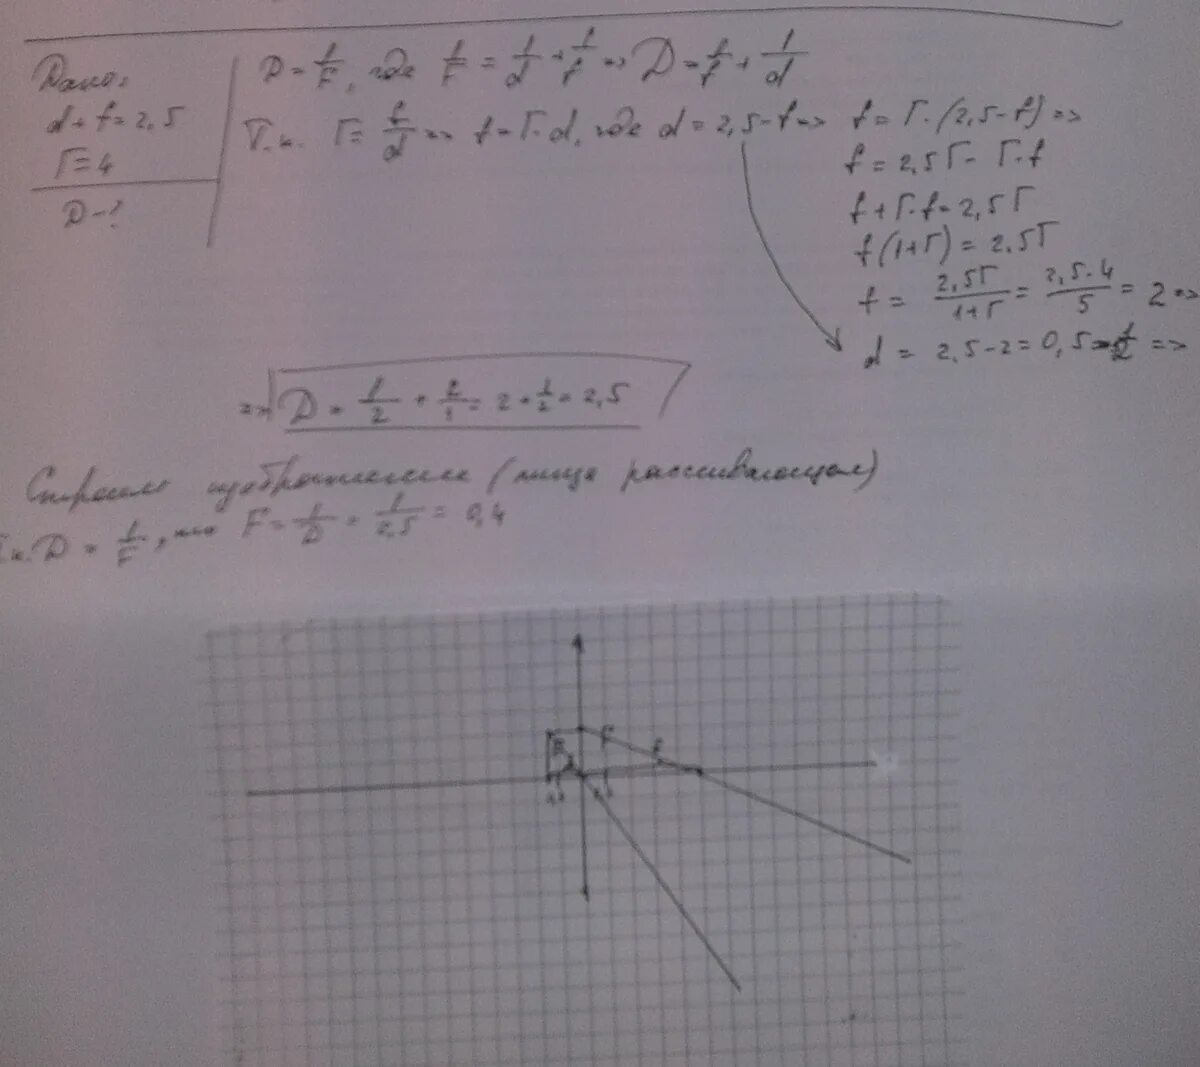 Дано:
d + f = 2,5
Г = 4
D - ?
D = 1/F, где 1/F = 1/d + 1/f => D = 1/f + 1/d
Т.к. Г = f/d => f = Г·d, где d = 2,5 - f => f = Г·(2,5 - f) =>
f = 2,5Г - Г·f
f + Г·f = 2,5Г
f(1+Г) = 2,5Г
f = 2,5Г/1+Г = 2,5·4/5 = 2 =>
d = 2,5 - 2 = 0,5 = 1/2 =>
=> D = 1/2 + 2/1 = 2 + 1/2 = 2,5
Строим изображение (линза рассеивающая)
Т.к. D = 1/F, то F = 1/D = 1/2,5 = 0,4
F